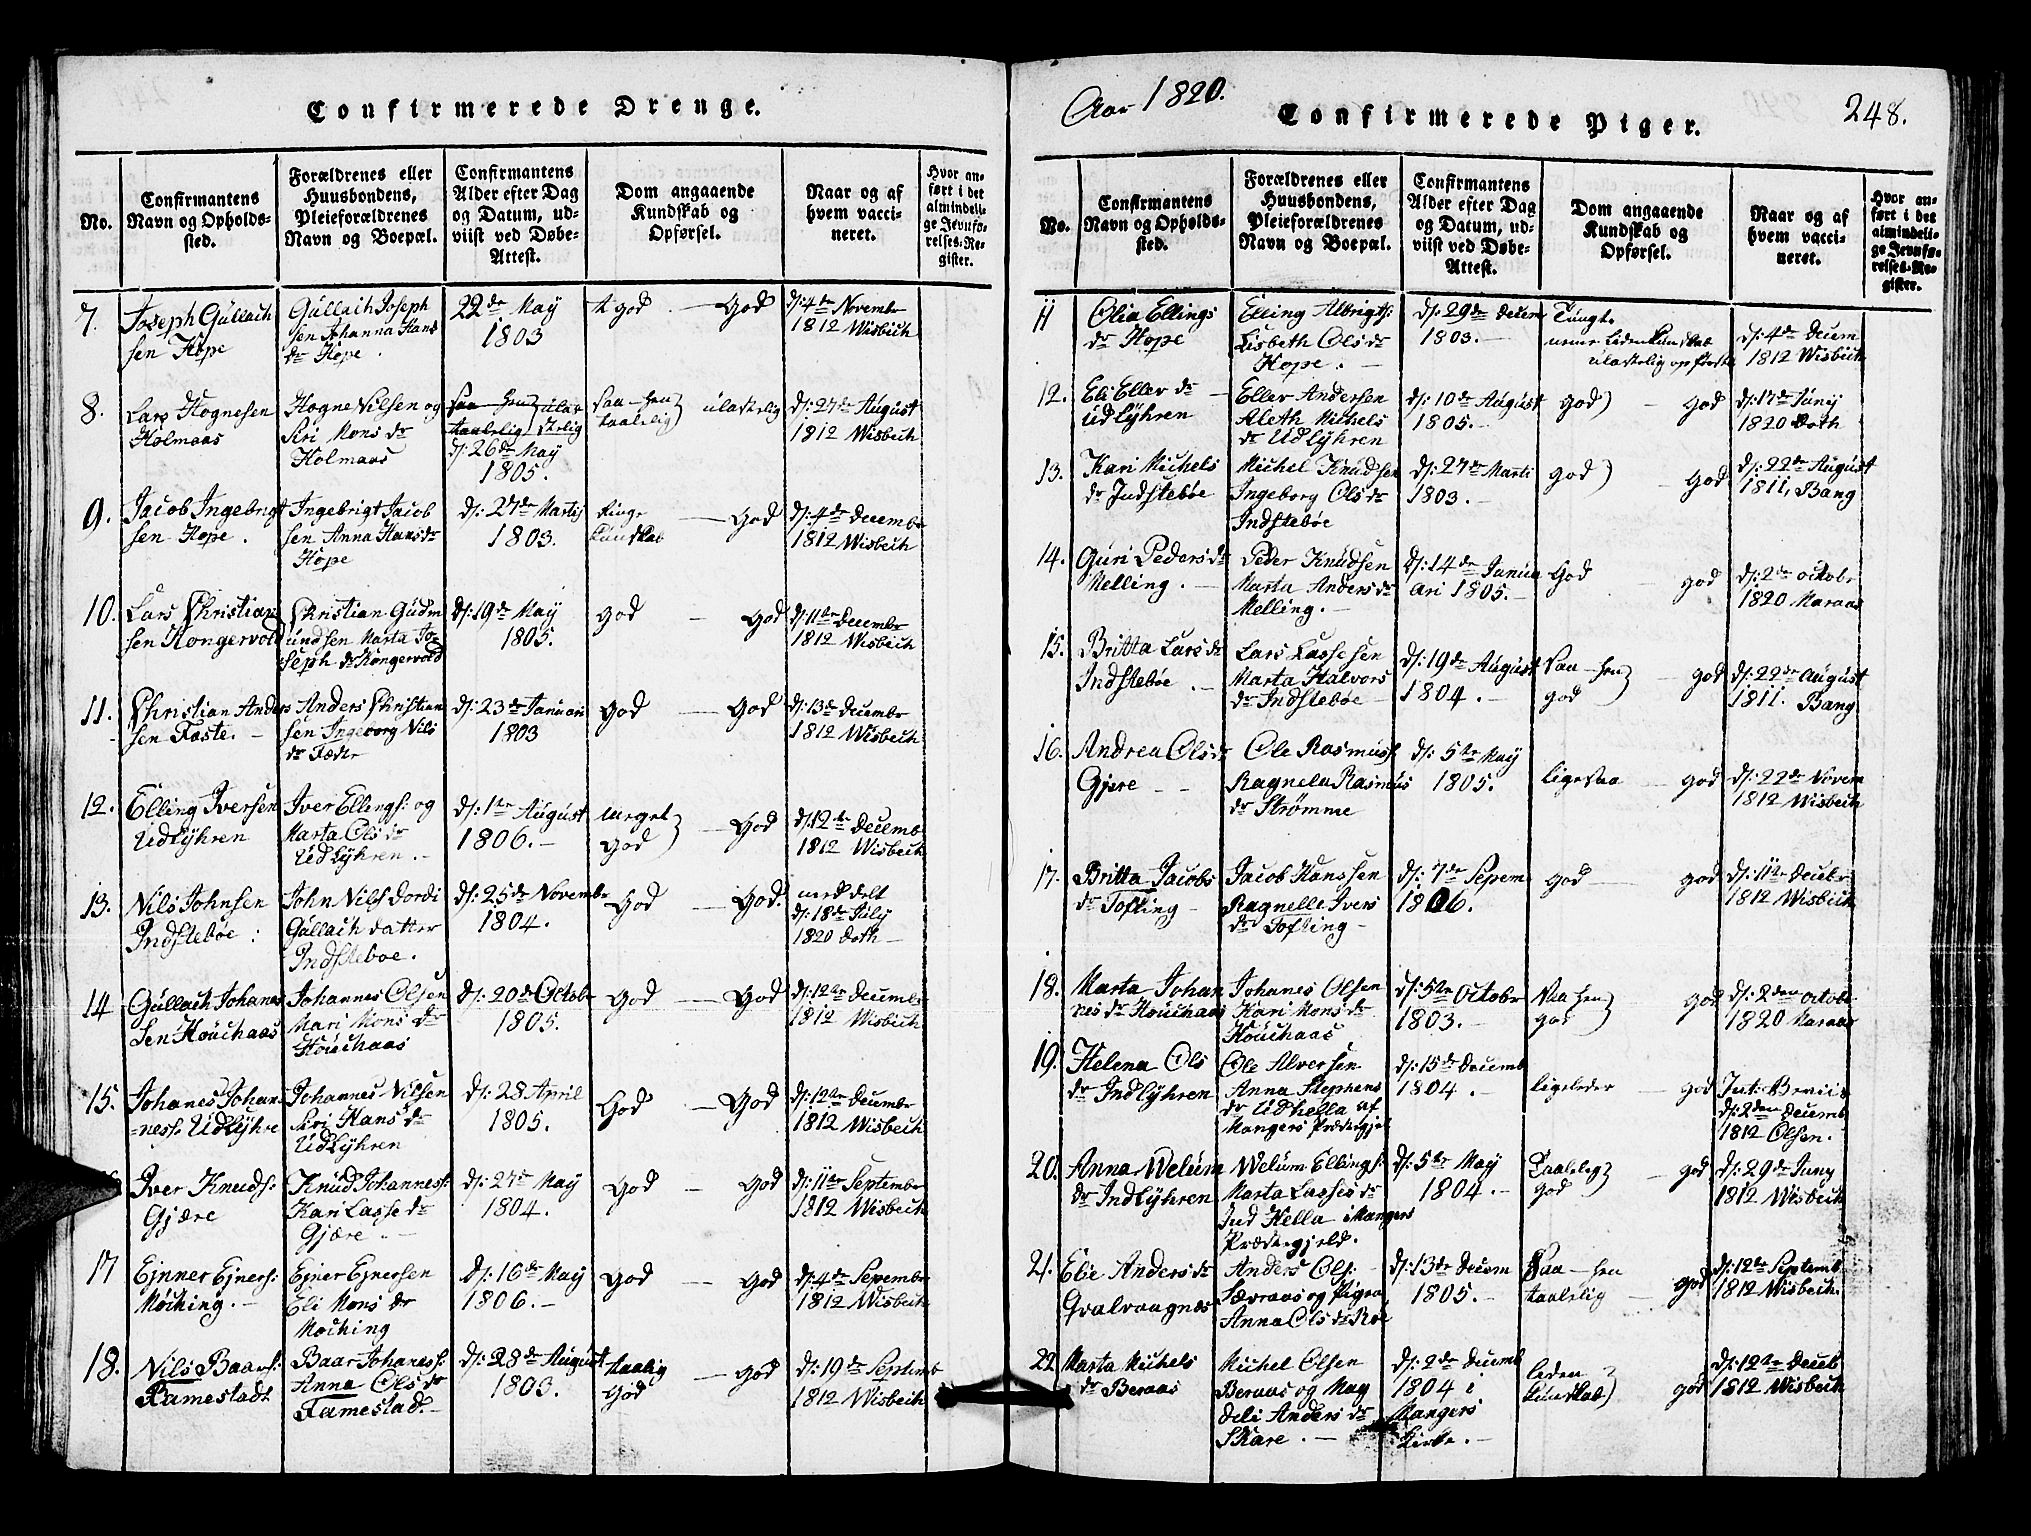 Confirmerede Drenge.
No.
Confirmantens
Navn og Opholds-
sted.
Forældrenes eller
Huusbondens,
Pleieforældrenes
Navn og Boepæl.
Confirmantens
Alder efter Dag
og Datum, ud-
viist ved Døbe-
Attest.
Dom angaaende
Kundskab og
Opførsel.
Naar og af
hvem vacci-
neret.
Hvor an-
ført i det
almindeli-
ge Jevnfø-
relses-Re-
gister.
7.
Joseph Gullach
sen Hope
Gullach Joseph
sen Johanna Hans
dr Hope.
22de May
1803
god — God
d: 4de Novembr
1812 Wisbech
8.
Lars Hognesen
Holmaas
Hogne Nilsen og
Siri Mons dr
Holmaas
d: 26de May
1805.
taalelig ulastelig
d: 27de August
1812 Wisbech
9.
Jacob Ingebrigt
sen Hope.
Ingebrigt Jacob
sen Anna Hans dr
Hope
d: 27de Martij
1803.
Ringe
Kundskab — God
d: 4de Decembr
1812 Wisbech
10.
Lars Christian
sen Kongervold
Christian Gudm
undsen Marta Jo-
seph dr Kongervold
d: 19de May
1805.
god — God
d: 11te Decembr
1812 Wisbech
11.
Christian Anders
sen Foste.
Anders Christian
sen Ingeborg Nils
dr
d: 23de Januari
1803
God — God
d: 13de Decembr
1812 Wisbech
12.
Elling Iversen
Udlÿhren
Iver Ellings: og
Marta Ols dr
Udlÿhren.
d: 1te August
1806.
meget
God — God
d: 12te Decembr
1812 Wisbech
13.
Nils Johnsen
Indstebøe:
John Nils Dordi
Gullach datter
Indsteboe.
d: 25de Novembr
1804.
God — God.
d: 18de July
1820 Doth
14
Gullach Johanes
sen Houchaas
Johannes Olsen
Mari Mons dr
Houchaas
d: 20de Octobr
1805.
God — God
d: 12te Decembr
1812 Wisbech
15.
Johanes Johan
=ness: Udlÿhre
Johannes Nilsen
Siri Hans dr
Udlÿhren
d: 28 April
1805.
God — God
d: 12te Decembr
1812 Wisbech
Iver Knuds:
Gjære
Knud Johanness:
Kari Lasse dr
Gjære.
d: 27de May
1804.
God — God
d: 11te Septembr
1812 Wisbech
17
Ejnner Ejners:
Møching.
Ejner Ejnersen
Eli Mons dr
Moching
d: 16de May
1806.
God — God
d: 4de Sepembr
1812 Wisbech
18.
Nils Baars:
Ramestadt
Baar Johaness:
Anna Ols dr
Ramestad.
d: 28de August
1803.
taalig
God — God
d: 19de Septemb
1812 Wisbech
Aar 1820.
Confirmerede Piger.
248.
No.
Confirmantens
Navn og Opholds-
sted.
Forældrenes eller
Huusbondens,
Pleieforældrenes
Navn og Boepæl.
Confirmantens
Alder efter Dag
og Datum, ud-
viist ved Døbe-
Attest.
Dom angaaende
Kundskab og
Opførsel.
Naar og af
hvem vacci-
neret.
Hvor an-
ført i det
almindeli-
ge Jevnfø-
relses-Re-
gister.
11
Olia Ellings
dr Hope
Elling Albrigts:
Lisbeth Ols dr
Hope.
d: 29de Decem
1803.
Tungt
nemme liden Kundskab
ulastelig
d: 4de Decem
1812 Wisbech
12.
Eli Eller dr
Udlÿhren
Eller Andersen
Aleth Michels
dr Udlÿhren
d: 10de August
1805.
God — God
d: 17de Juny
1820 Doth
13.
Kari Michels
dr Indstebøe
Michel Knudsen
Ingeborg Ols dr
Indstebøe
d: 27de Marti
1803.
God — God
d: 22de August
1811, Bang
14.
Guri Peders dr
Melling.
Peder Knudsen
Marta Anders dr
Melling.
d: 14de Janua
ari 1805.
God — god
d: 2de Octobr
1820 Maraas
15.
Britta Lars dr
Indstebøe.
Lars Lassesen
Marta Halvors
dr Indstebøe
d: 19de August
1804.
god — god
d: 22de August
1811. Bang
16.
Andrea Ols dr
Gjere
Ole Rasmus:
Ragnela Rasmus
dr Strømme
d: 5te May
1805.
ligesaa — god
d: 22de Novem
1812 Wisbech
17.
Britta Jacobs
dr Tofting
Jacob Hanssen
Ragnelle Ivers
dr Tofting
d: 7de Sepem
1806.
God — god
d: 11te Decbr
1812 Wisbech
18.
Marta Johan
nes dr Houchaas
Johanes Olsen
Kari Mons dr
Houchaas
d: 5te Octobr
1803.
god — god
d: 2den Octobr
1820 Maraas
19.
Helena Ols
dr Indlÿhren
Ole Alversen
Anna Stephens
dr Udhella af
Mangers Prædiegjel
d: 15de Decemb
1804.
ligeleder — god
d: 2den Decemb
1812 Olsen.
20.
Anna Welum
dr Indlÿhren
Welum Ellings:
Marta Lasses dr
Ind Hella i Mangers
Prædiegjeld.
d: 5te May
1804.
Taaleleg
God — god
d: 29de Juny
1812 Wisbech
21.
Elie Anders dr
Qvalvaagnes
Anders Ols:
Sævraas og
Anna Ols dr Røe
d: 13de Decem
1805.
taalelig — god
d: 12te Septemb
1812 Wisbech.
22
Marta Michels
dr Beraas
Michel Olsen
Beraas og Mag
deli Anders dr
Skare.
d: 2de Decemb
1804 i
Mangers
Kirke.
leden
Kundskab — god
d: 12te Decb
1812 Wisbech